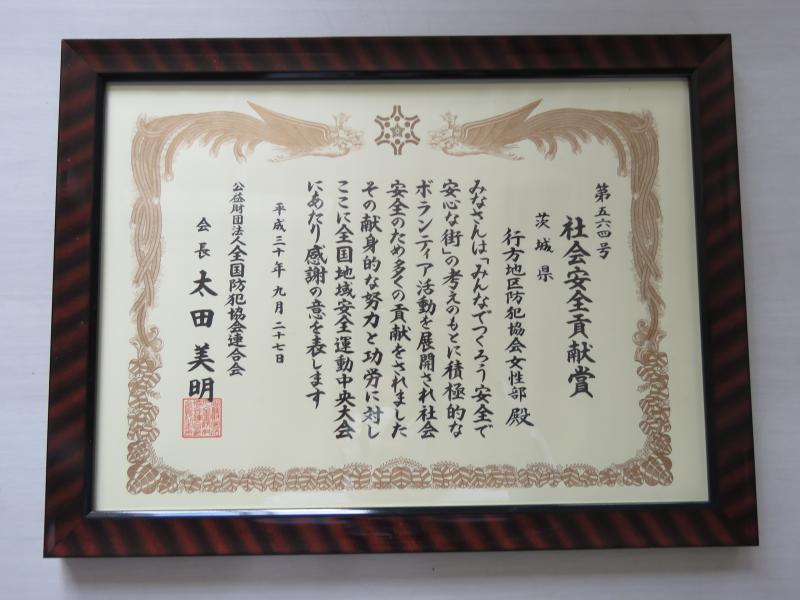 第五六四号
社会安全貢献賞
茨城県
行方地区防犯協会女性部 殿
みなさんは「みんなでつくろう安全で
安心な街」の考えのもとに積極的な
ボランティア活動を展開され社会
安全のため多くの貢献をされました
その献身的な努力と功労に対し
ここに全国地域安全運動中央大会
にあたり感謝の意を表します
平成三十年九月二十七日
公益財団法人全国防犯協会連合会
会長 太田美明